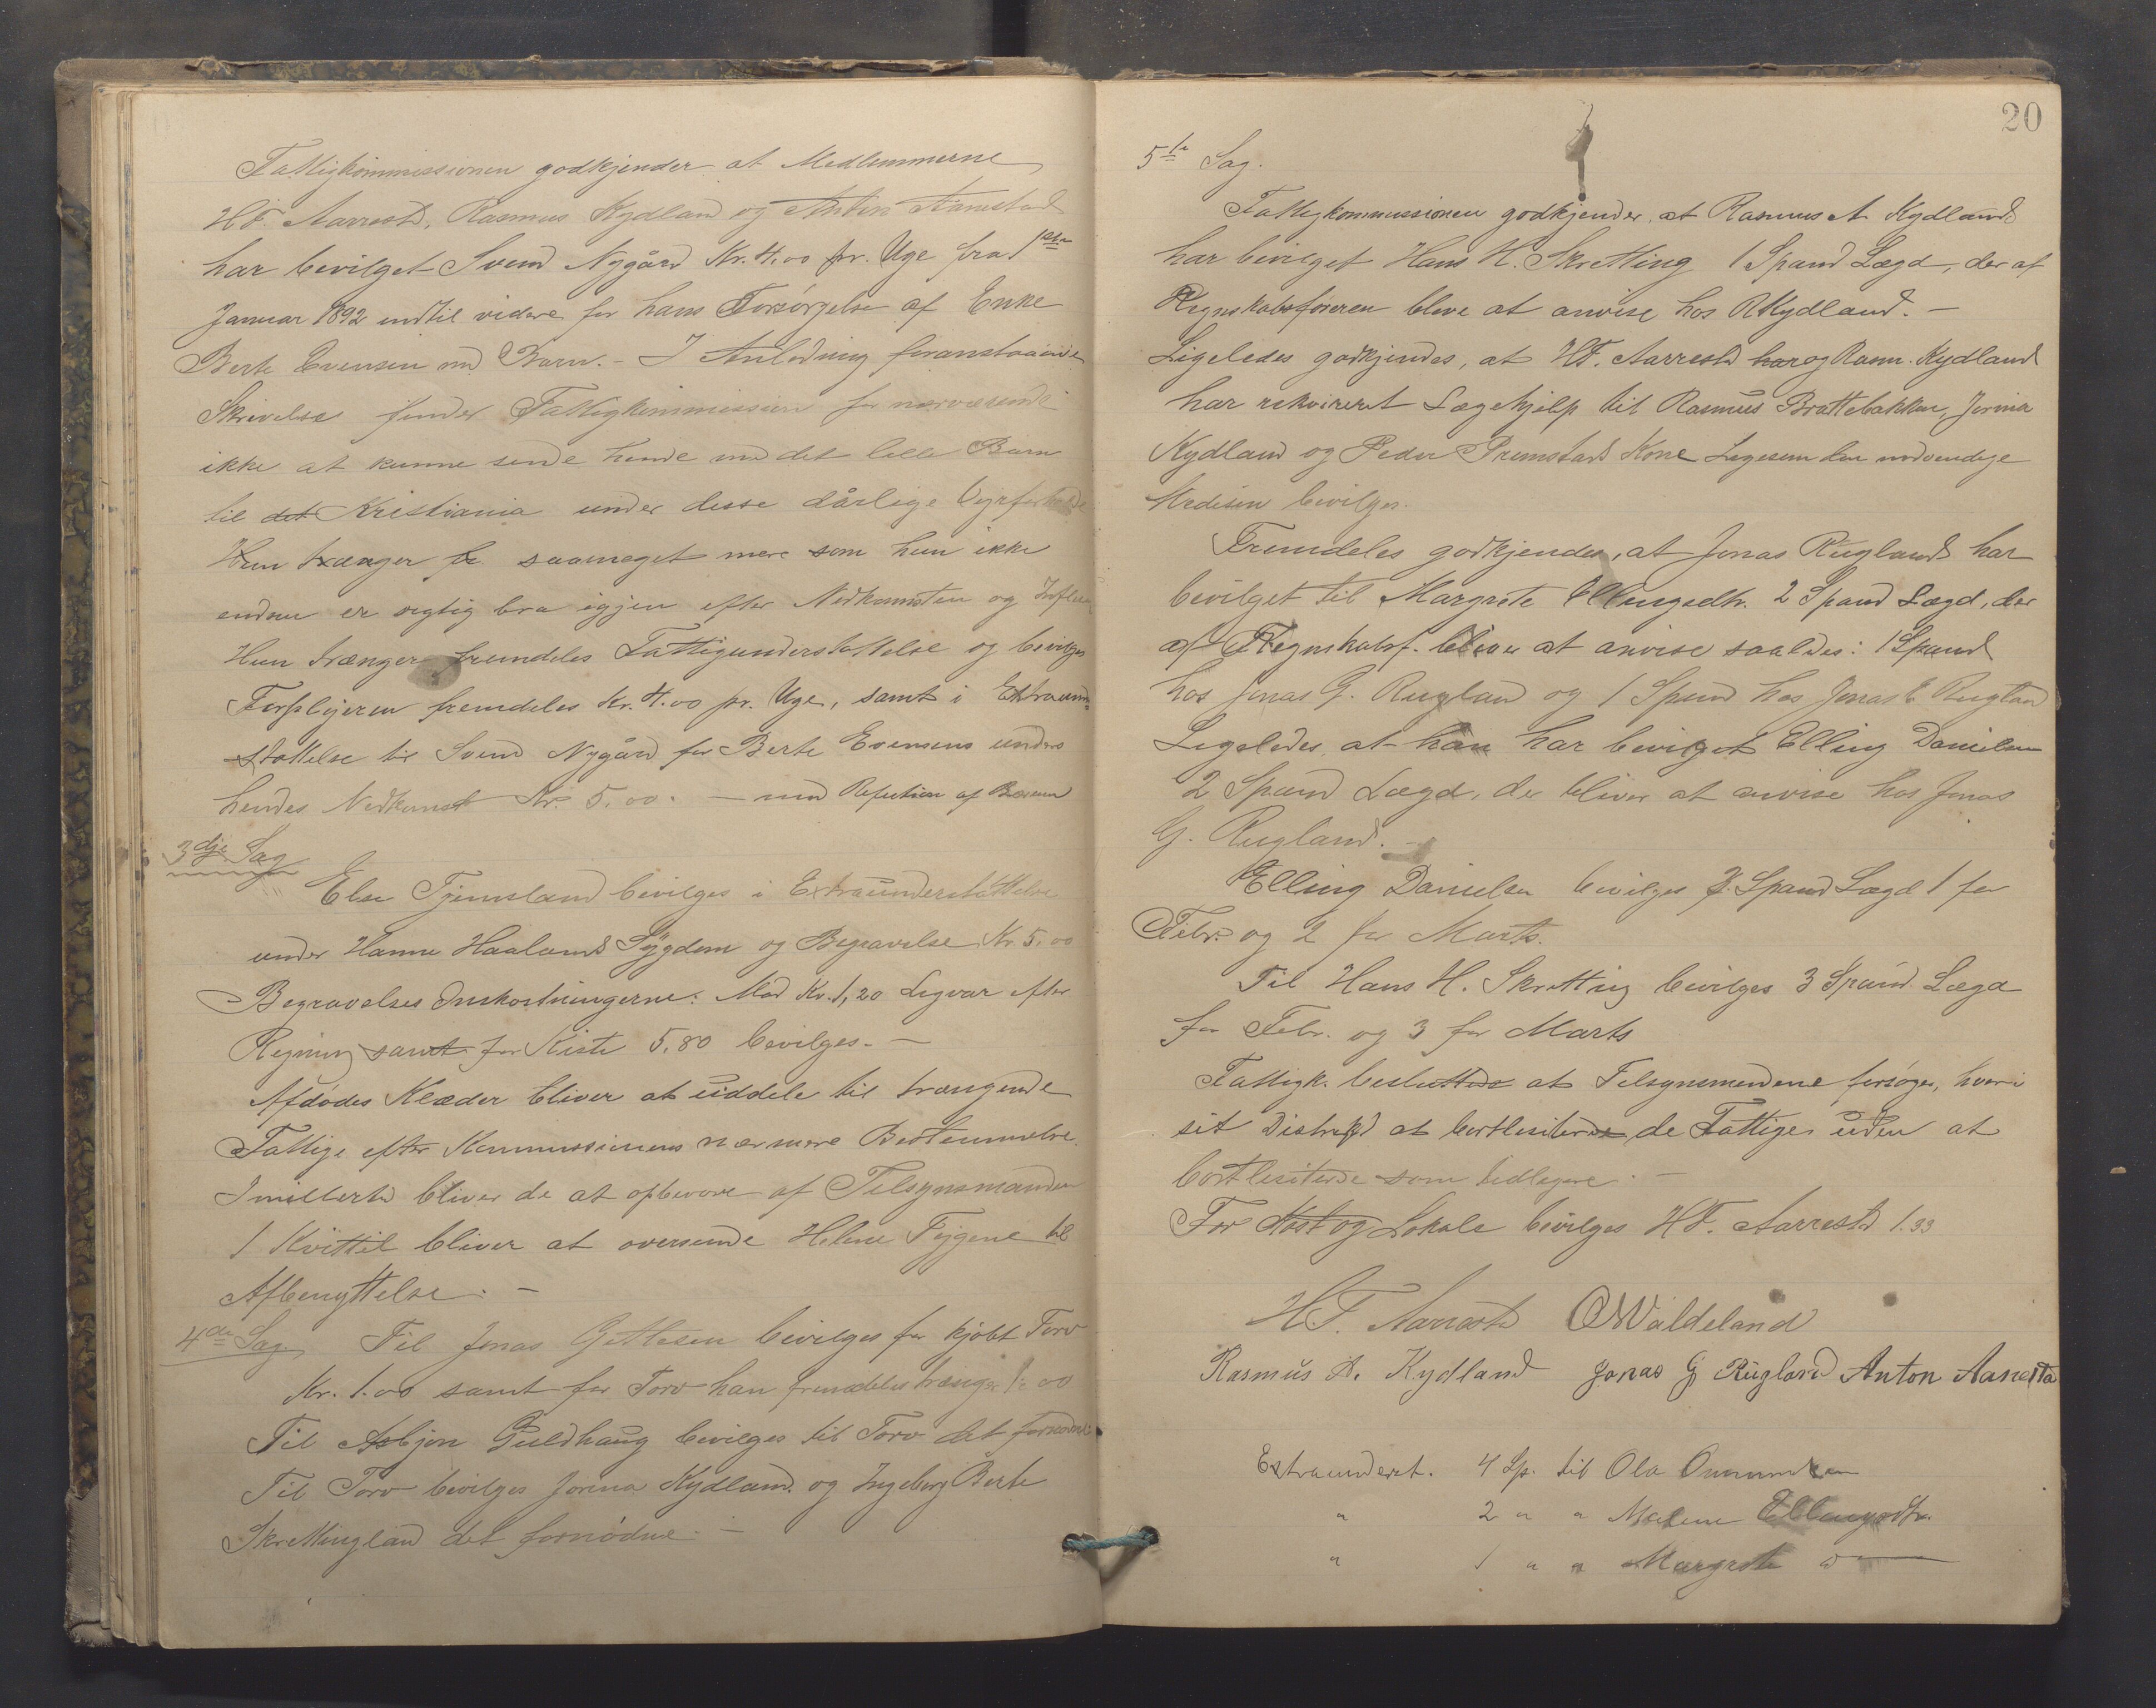 Fattigkommissionen godkjender at Medlemmerne
H.F. Aarrestd, Rasmus Kydland og Anton Aanestad
har bevilget Svend Nygård Kr. 4.00 pr. Uge fra 1ste
Januar 1892 indtil videre for hans Forsørgelse af Enke
Berte Evensen md Barn. – I Anledning foranstaaende
Skrivelse finder Fattigkommission for nærværende
ikke at kunne sende hende md det lille Barn
til det Kristiania under disse dårlige Vejrforholde
Hun trænger saameget mere som hun ikke
endnu er rigtig bra igjen efter Nedkomsten og
Hun trænger fremdeles Fattigunderstøttelse og bevilges
Forplejeren fremdeles Kr. 4.00 pr. Uge, samt i Extraun-
støttelse til Svend Nygård for Berte Evensens under
hendes Nedkomst Kr. 5.00. – md Refution af
3dje Sag
Else Tjemsland bevilges i Extraunderstøttelse
under Hanne Haalands Sygdom og Begravelse Kr. 5.00
Begravelses Omkostningerne: Mad Kr. 1,20 Ligvar efter
Regning samt for Kiste 5.80 bevilges. –
Afdødes Klæder bliver at uddele til trængende
Fattige efter Kommissionens nærmere Bestemmelse.
Imidlertid bliver de at opbevare af Tilsynsmanden
1 Kvittil bliver at oversende Helene Tygene til
Afbenyttelse. –
4de Sag Til Jonas Gitlesen bevilges for kjøbt Torv
Kr. 1.00 samt for Torv han fremdeles trænger 1.00
Til Asbjøn Guldhaug bevilges til Torv det fornødne
Til Torv bevilges Jorina Kydland og Ingeborg Berte
Skrettingland det fornødne. –
20
5te Sag.
Fattigkommissionen godkjender, at Rasmus A Kydland
har bevilget Hans H. Skretting 1 Spand Lægd, der af
Regnskabsføreren blive at anvise hos RKydland. –
Ligeledes godkjendes, at H.F. Aarrestd har og Rasm. Kydland
har rekvireret Lægehjelp til Rasmus Brattebakken, Jorina
Kydland og Peder Kone Ligesom den nødvendige
Medisin bevilges.
Fremdeles godkjendes, at Jonas Rugland har
bevilget til Margrete Ellingsdtr. 2 Spand Lægd, der
af Regnskabsf. bliver at anvise saaledes: 1 Spand
hos Jonas G. Rugland og 1 Spand hos Jonas E. Rugland
Ligeledes at han har bevilget Elling Danielsen
2 Spand Lægd, der bliver at anvise hos Jonas
G. Rugland. –
Elling Danielsen bevilges 3 Spand Lægd 1 for
Febr. og 2 for Marts.
Til Hans H. Skretting bevilges 3 Spand Lægd
for Febr. og 3 for Marts
Fattigk. beslutted at Tilsynsmændene forsøger, hver i
sit Distrikt at bortlisitere de Fattige uden at
bortlisitere som tidligere. –
For Kost og Lokale bevilges H.F. Aarrestd 1.33
H.F. Aarrestd OWaldeland
Rasmus A. Kydland Jonas G Rugland Anton Aanesta
Extraunderst. 4 Sp. til Ola Omundsen
" 2 " " Malene Ellingsdtr.
" 1 " " Margrete "